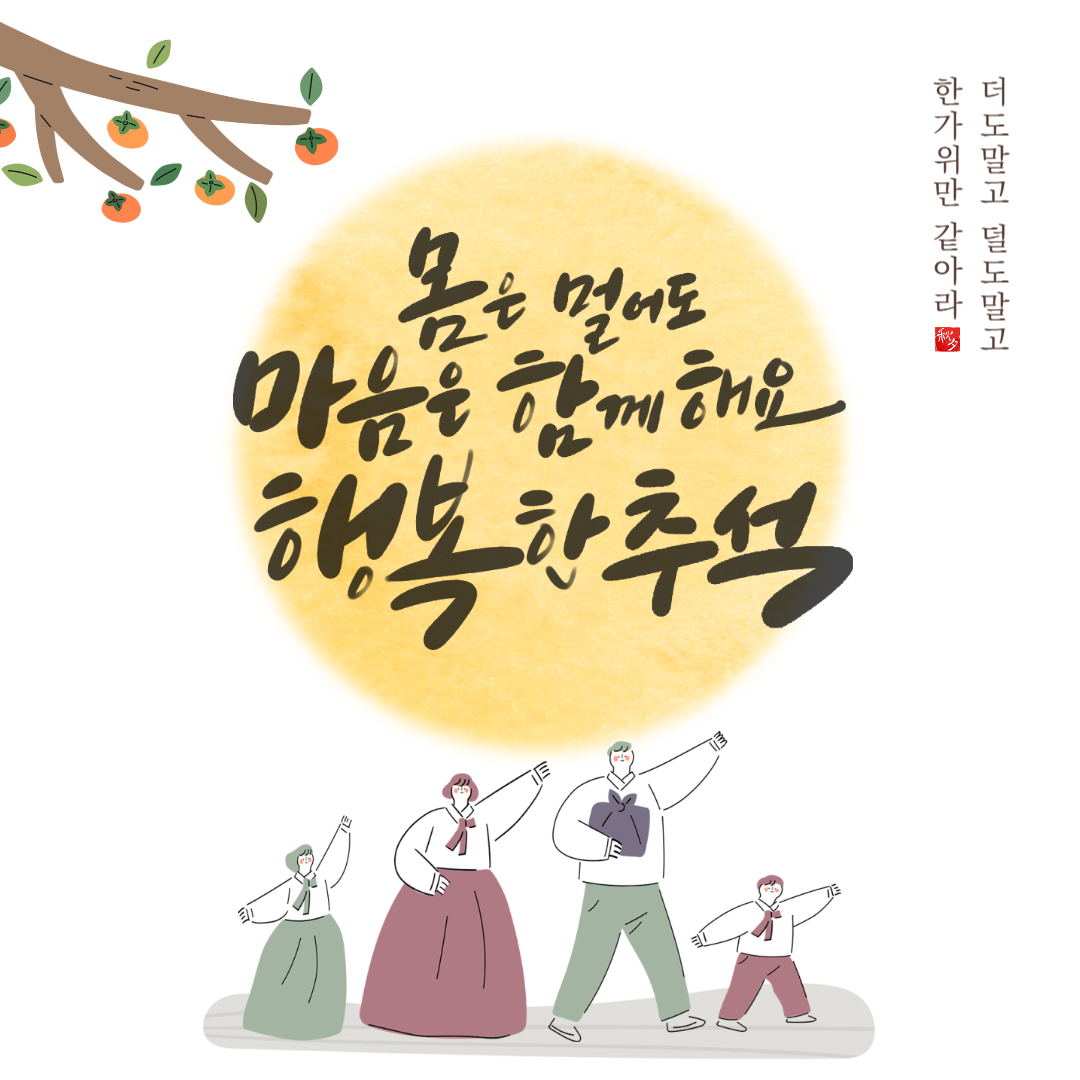 몸은 멀어도
마음은 함께해요
행복한추석
더도말고 덜도말고
한가위만 같아라
秋夕